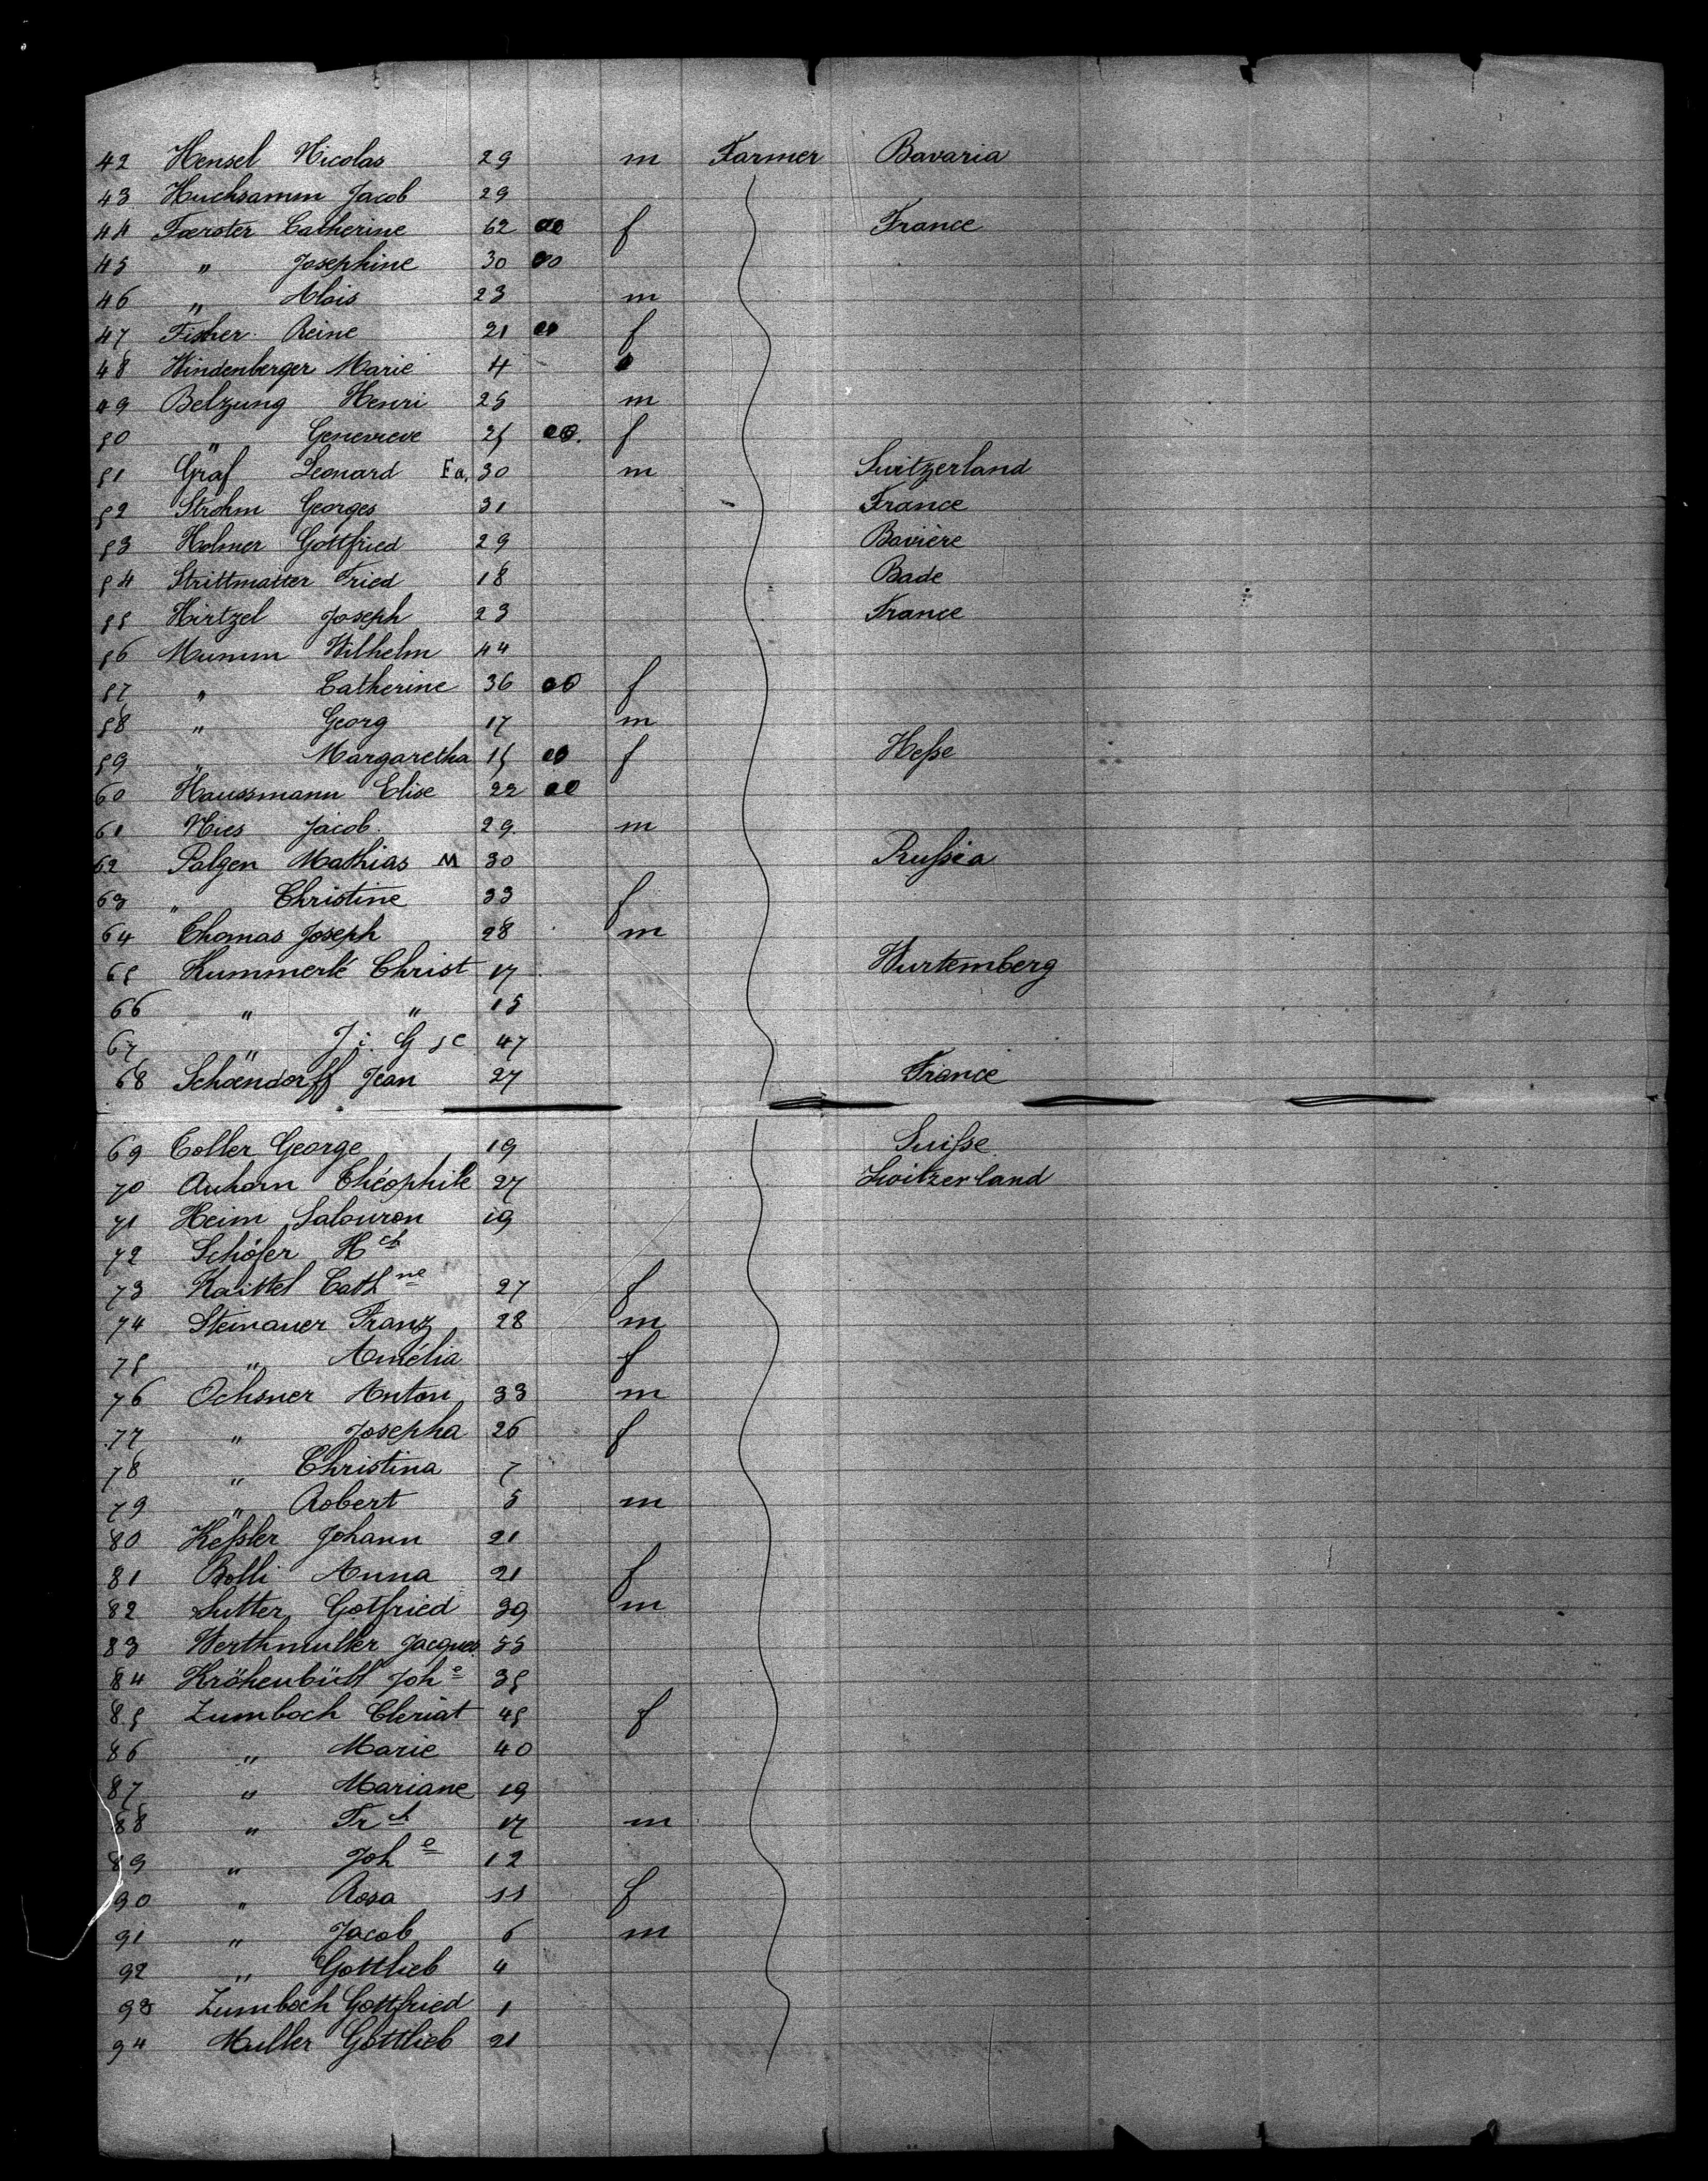 42 Hensel Nicolas 29 m Farmer Bavaria
43 Huchsamm Jacob 29
44 Færster Catherine 62 f France
45 " Josephine 30
46 " Alois 23 m
47 Fischer Reine 21 f
48 Windenberger Marie 4
49 Belzung Henri 25 m
50 " Genevieve 25 f
51 Gräf Leonard Fa. 30 m Switzerland
52 Strohm Georges 31 France
53 Holmer Gottfried 29 Bavière
54 Strittmatter Fried 18 Bade
55 Hirtzel Joseph 23 France
56 Mumm Wilhelm 44
57 " Catherine 36 f
58 " Georg 17 m
59 " Margaretha 15 f Heſse
60 Haussmann Elise 22
61 Nies Jacob 29 m
62 Palgen Mathias M 30 Pruſsia
63 " Christine 33 f
64 Thomas Joseph 28 m
65 Kummerlé Christ 17 Wurtemberg
66 " " 15
67 " 47
68 Schœndorff Jean 27 France
69 Toller George 19 Suiſse
70 Auhorn Théophile 27 Zwitzerland
71 Heim 19
72 Schöfer Hch
73 Kaittel Cathne 27 f
74 Steinauer Franz 28 m
75 " Amélia f
76 Ochsner Anton 33 m
77 " Josepha 26 f
78 " Christina 7
79 " Robert 5 m
80 Keſsler Johann 21
81 Bolli Anna 21 f
82 Sutter Gotfried 39 m
83 Werthmuller Jacques 55
84 Kröhenbütl Johe 35
85 Zumboch 45 f
86 " Marie 40
87 " Mariane 19
88 " Frh 17 m
89 " Johe 12
90 " Rosa 11 f
91 " Jacob 6 m
92 " Gottlieb 4
93 Zumboch Gottfried 1
94 Muller Gottlieb 21